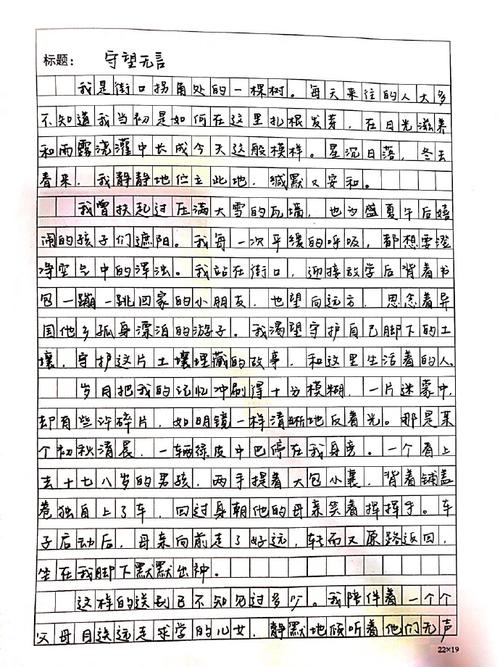 标题： 守望无言
我是街口拐角处的一棵树。每天来往的人大多
不知道我当初是如何在这里扎根发芽，在日光滋养
和雨露浇灌中长成今天这般模样。星沉日落，冬去
春来，我静静地伫立此地，缄默又安和。
我曾扶起过压满大雪的瓦墙，也为盛夏午后嬉
闹的孩子们遮阳。我每一次平缓的呼吸，都想要澄
净空气中的浑浊。我站在街口，迎接放学后背着书
包一蹦一跳回家的小朋友，也望向远方，思念着异
国他乡孤身漂泊的游子。我渴望守护自己脚下的土
壤，守护这片土壤埋藏的故事，和这里生活着的人。
岁月把我的记忆冲刷得十分模糊，一片迷蒙中，
却有些许碎片，如明镜一样清晰地反着光。那是某
个初秋清晨，一辆绿皮中巴停在我身旁。一个看上
去十七八岁的男孩，两手提着大包小裹，背着铺盖
卷独自上了车，回过身朝他的母亲笑着挥挥手。车
子启动后，母亲向前走了好远，转而又原路返回，
坐在我脚下默默出神。
这样的送别已不知见过多少。我陪伴着一个个
父母目送远走求学的儿女，静默地倾听着他们无声
22×19